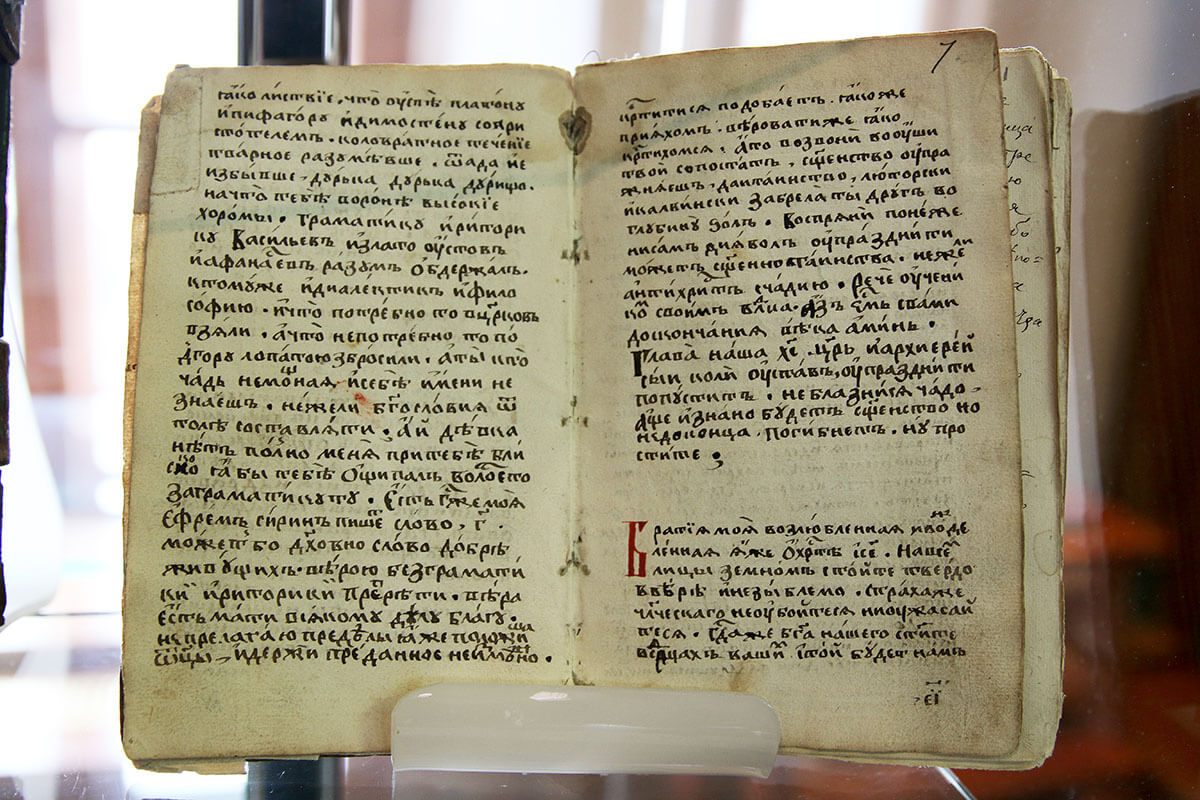 тако листвїе, что ѹспѣ платонꙋ
ипифагорꙋ идимостенꙋ соари
стотелемъ. коловратное течен̾їе
тварное разꙋмѣвше. ѿада не
избывше, дꙋрька дꙋрька дꙋрищо.
начто тебѣ воронѣ высокїе
хоромы. граматикꙋ иритори
кꙋ Васильевъ излато ѹстовъ
иаѳанасевъ разꙋмъ обдержалъ.
ктомꙋже идиалектикꙋ ифило
софию. ичто потребно то вцрковь
взяли. ачто непотребно то по
дгорꙋ лопатою збросили. аты кто
чадь немощная исебѣ имени не
знаешь. нежели бгословия ѿ
толѣ составляти. ай дѣвка
нѣтъ полно меня притебѣ бли
ско га бы тебѣ ощипалъ волосето
заграматикꙋтꙋ. Есть гдже моя
Ефремъ сиринъ пишетъ слово, г.
можетъ бо дꙋховно слово добрѣ
живꙋщихъ. вѣрою безграмати
ки ириторики прерѣти. вѣра
есть мати всякомꙋ дѣлꙋ благꙋ.
непрелагаю предѣлы яже положиша
ѿцы, идержи преданное неизмѣнно.
7
кртитися подобаетъ. такоже
прияхомъ. вѣроватиже тако
кртихомся. Ато возвони воѹши
твой сопостатъ, сщенство ѹпра
жняешь, даитаинство, люторски
икалвински забрелаты дрꙋгъ во
глꙋбинꙋ золъ. Воспряни понеже
нисамъ дияволъ ѹпразднити
можетъ сщенно таинства. нежели
антихристъ счадию. Рече ѹчени
комъ своимъ влка. Азъ есмь свами
доскончания вѣка аминь.
Глава наша хс, црь иархиереи
сыи коли ѹставъ, ѹпразднити
попꙋститъ. неблазнися чадо.
аще изнано бꙋдетъ сщенство но
недоконца. погибнетъ. нꙋ про
стите;
Братїя моя возлюбленная ивожде
лѣнная яже охртѣ ісе. Нашегѡ
лицы земномъ стойте твердо
ввѣрѣ инезыблемо. страхаже
члческаго неѹбойтеся ниѹжасай
теся. Гдаже бга нашего стите
всрдцахъ вашихъ ітой бꙋдетъ намъ
еі